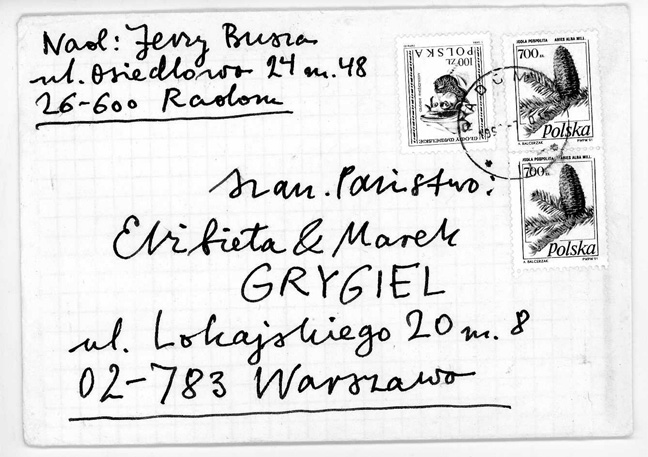 Nad: Jerzy Busza
ul. Osiedlowa 24 m. 48
26-600 Radom
100 ZŁ
POLSKA
JODŁA POSPOLITA ABIES ALBA MILL.
700 ZŁ
Polska
H. BALCERZAK
PWPW 91
JODŁA POSPOLITA ABIES ALBA MILL.
700 ZŁ
Polska
H. BALCERZAK
PWPW 91
RADOM
Szan. Państwo:
Elżbieta & Marek
GRYGIEL
ul. Lokajskiego 20 m. 8
02-783 Warszawa